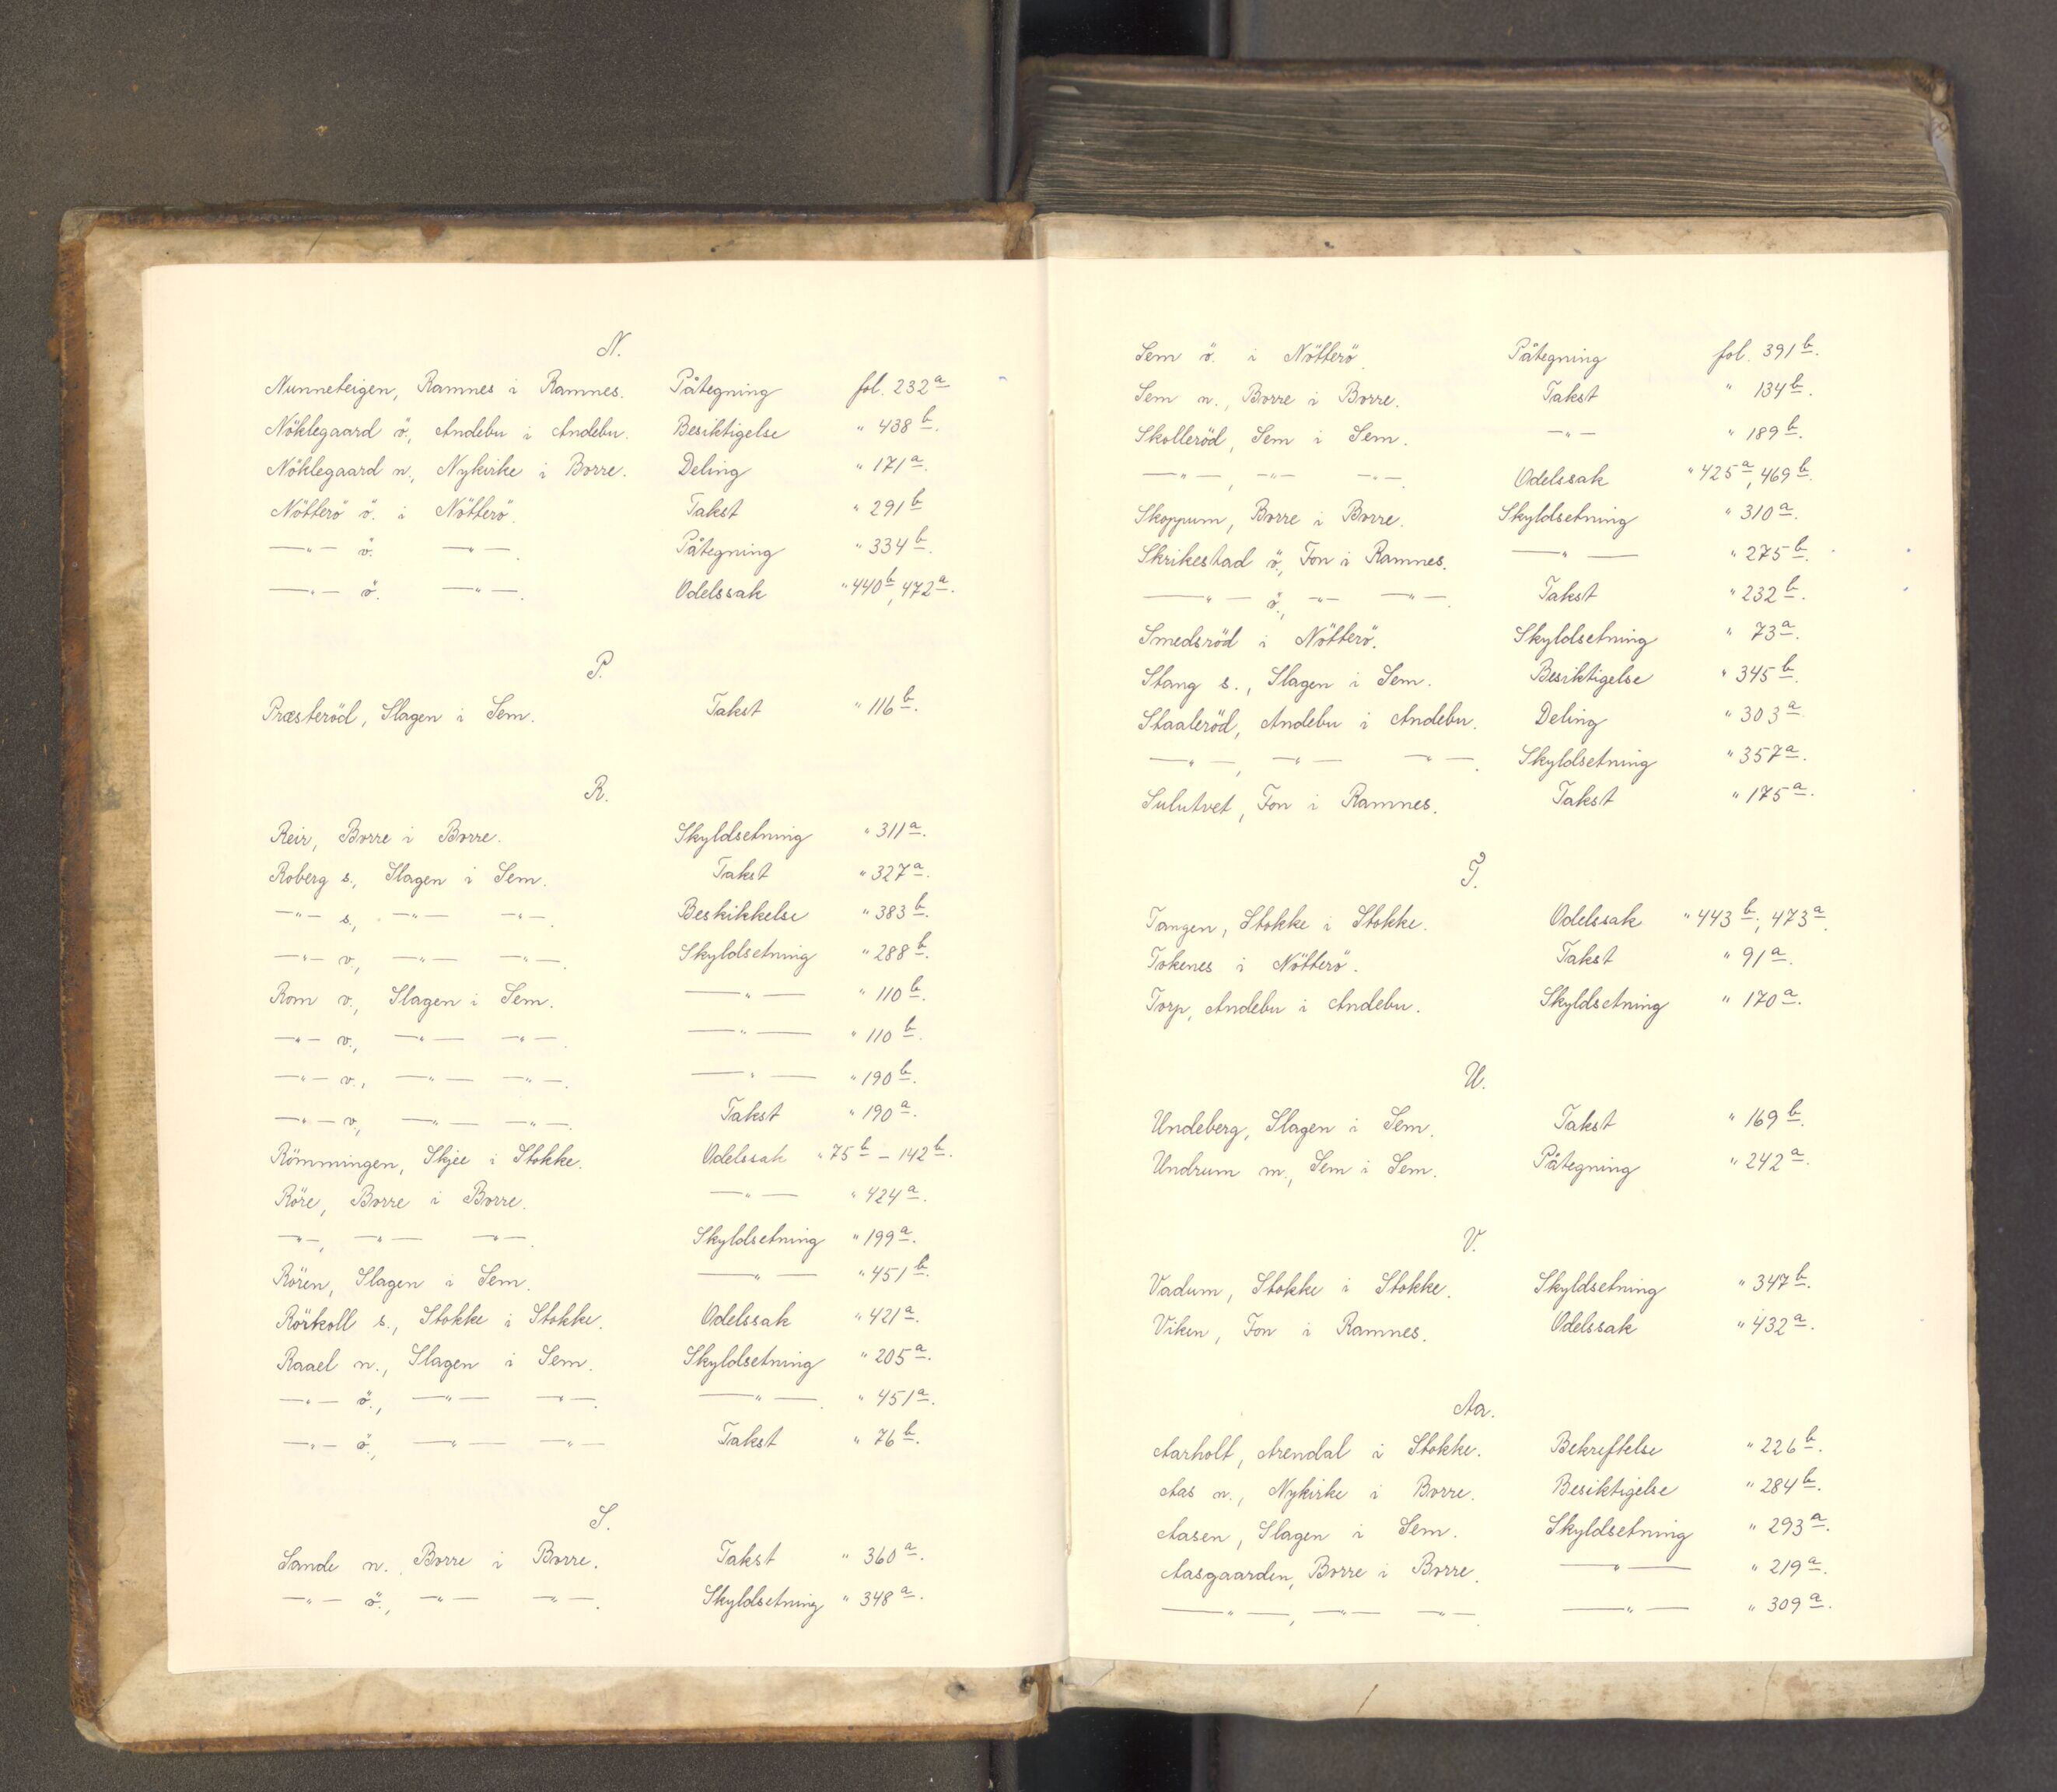 N.
Nunneteigen, Ramnes i Ramnes. Påtegning fol. 232 a
Nöklegaard ö., Andebu i Andebu. Besiktigelse " 438 b.
Nöklegaard n., Nykirke i Borre. Deling " 171 a.
Nötterö ö. i Nötterö. Takst " 291 b
—"— ö. —"—. Påtegning " 334 b.
—"— ö. —"—. Odelssak " 440 b, 472 a.
P.
Præsteröd, Slagen i Sem. Takst " 116 b.
R.
Reir, Borre i Borre. Skyldsetning " 311 a.
Roberg s., Slagen i Sem. Takst " 327 a.
—"— s., —"— —"—. Beskikkelse " 383 b.
—"— v., —"— —"—. Skyldsetning " 288 b.
Rom v., Slagen i Sem. —"— " 110 b.
—"— v., —"— —"—. —"— " 110 b.
—"— v., —"— —"—. —"— " 190 b.
—"— v., —"— —"—. Takst " 190 a.
Römmingen, Skjee i Stokke. Odelssak " 75 b — 142 b.
Röre, Borre i Borre. —"— " 424 a.
—"—, —"— —"—. Skyldsetning " 199 a.
Rören, Slagen i Sem. —"— " 451 b.
Rörkoll s., Stokke i Stokke. Odelssak " 421 a.
Raael n., Slagen i Sem. Skyldsetning " 205 a.
—"— ö., —"— —"—. —"—. " 451 a.
—"— ö., —"— —"— Takst " 76 b.
S.
Sande n., Borre i Borre. Takst " 360 a.
—"— ö., —"— —"—. Skyldsetning " 348 a.
Sem ö. i Nötterö. Påtegning fol. 391 b.
Sem n., Borre i Borre. Takst " 134 b.
Skolleröd, Sem i Sem. —"— " 189 b.
—"—, —"— —"—. Odelssak " 425 a, 469 b.
Skoppum, Borre i Borre. Skyldsetning " 310 a.
Skrikestad ö., Fon i Ramnes. —"— " 275 b.
—"— ö., —"— —"—. Takst " 232 b.
Smedsröd i Nötterö. Skyldsetning " 73 a.
Stang s., Slagen i Sem. Besiktigelse " 345 b.
Staaleröd, Andebu i Andebu. Deling " 303 a
—"—, —"— —"—. Skyldsetning " 357 a.
Sulutvet, Fon i Ramnes. Takst " 175 a.
T.
Tangen, Stokke i Stokke. Odelssak " 443 b; 473 a.
Tokenes i Nötterö. Takst " 91 a.
Torp, Andebu i Andebu. Skyldsetning " 170 a.
U.
Undeberg, Slagen i Sem. Takst " 169 b.
Undrum m., Sem i Sem. Påtegning " 242 a.
V.
Vadum, Stokke i Stokke. Skyldsetning " 347 b.
Viken, Fon i Ramnes. Odelssak " 432 a.
Aa.
Aarholt, Arendal i Stokke. Bekreftelse " 226 b.
Aas n., Nykirke i Borre. Besiktigelse " 284 b.
Aasen, Slagen i Sem. Skyldsetning " 293 a.
Aasgaarden, Borre i Borre. —"— " 219 a.
—"—, —"— —"—. —"— " 309 a.